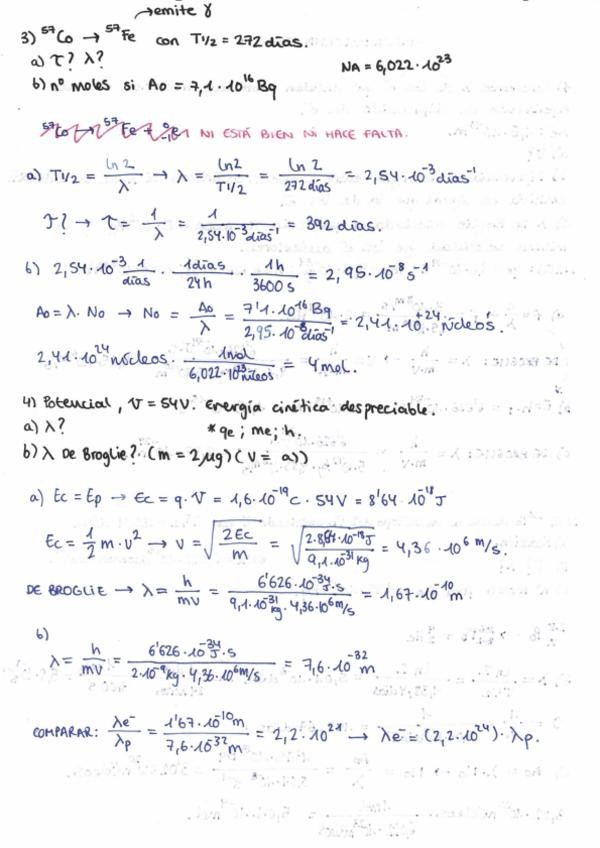 →emite γ
3) ⁵⁷Co → ⁵⁷Fe con T1/2 = 272 días.
a) τ? λ? NA = 6,022·10²³
b) nº moles si Ao = 7,1·10¹⁶ Bq
⁵⁷Co → ⁵⁷Fe + ⁰₋₁e NI ESTÁ BIEN NI HACE FALTA.
a) T1/2 = ln 2/λ → λ = ln2/T1/2 = ln 2/272 días = 2,54·10⁻³ días⁻¹
τ? → τ = 1/λ = 1/2,54·10⁻³ días⁻¹ = 392 días.
b) 2,54·10⁻³ 1/días · 1 días/24h · 1h/3600 s = 2,95·10⁻⁸ s⁻¹
Ao = λ·No → No = Ao/λ = 7'1·10¹⁶ Bq/2,95·10⁻⁸ días⁻¹ = 2,41·10⁺²⁴ núcleos.
2,41·10²⁴ núcleos · 1mol/6,022·10²³ núcleos = 4 mol.
4) Potencial, V = 54V. Energía cinética despreciable.
a) λ? * qe; me; h.
b) λ De Broglie? (m = 2μg) (v = a))
a) Ec = Ep → Ec = q·V = 1,6·10⁻¹⁹ C · 54V = 8'64·10⁻¹⁸ J
Ec = 1/2 m·v² → v = √(2Ec/m) = √(2·8,64·10⁻¹⁸ J/9,1·10⁻³¹ kg) = 4,36·10⁶ m/s.
DE BROGLIE → λ = h/mv = 6'626·10⁻³⁴ J·s/9,1·10⁻³¹ kg · 4,36·10⁶ m/s = 1,67·10⁻¹⁰ m
b)
λ = h/mv = 6'626·10⁻³⁴ J·s/2·10⁻⁹ kg · 4,36·10⁶ m/s = 7,6·10⁻³² m
COMPARAR: λe⁻/λp = 1'67·10⁻¹⁰ m/7,6·10⁻³² m = 2,2·10²¹ → λe⁻ = (2,2·10²⁴)·λp.